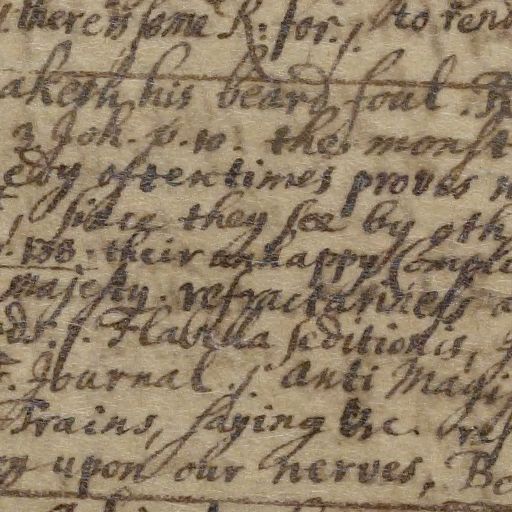 there is some R: for. / to rend
maketh his beard foul. 
3 Joh. p. 10. the monst
edy oftentimes proves
since they see by oth
138. their unhappy Comple
Majesty. refractariness
Flabella seditionis,
Journal. / Anti Magi
Trains, saying &c.
upon our nerves, Bo